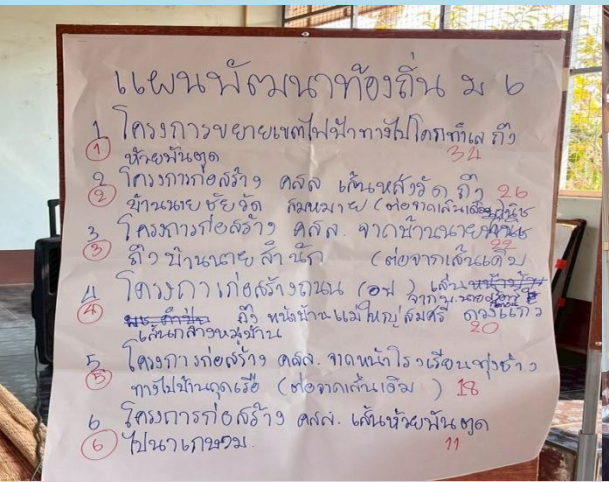 แผนพัฒนาท้องถิ่น ม 6
1 โครงการขยายเขตไฟฟ้าทางไปโคกทำเล ถึง
① ห้วยพันตูด 34
2 โครงการก่อสร้าง คสล เส้นหลังวัด ถึง 26
② บ้านนายชัยวัด สมหมาย (ต่อจากเส้นเดิม)
3 โครงการก่อสร้าง คสล. จากบ้านนาย
③ ถึงบ้านนายสำนัก (ต่อจากเส้นเดิม 22
4 โครงการก่อสร้างถนน (อบ ) เส้น
④ ถึง หน้าบ้านแม่ใหญ่สมศรี ดวงแก้ว
เส้นกลางหมู่บ้าน 20
5 โครงการก่อสร้าง คสล. จากหน้าโรงเรียนทุ่งช้าง
⑤ ทางไปบ้านกุดเรือ (ต่อจากเส้นเดิม ) 18
6 โครงการก่อสร้าง คสล. เส้นห้วยพันตูด
⑥ ไปนาเกษาม. 11